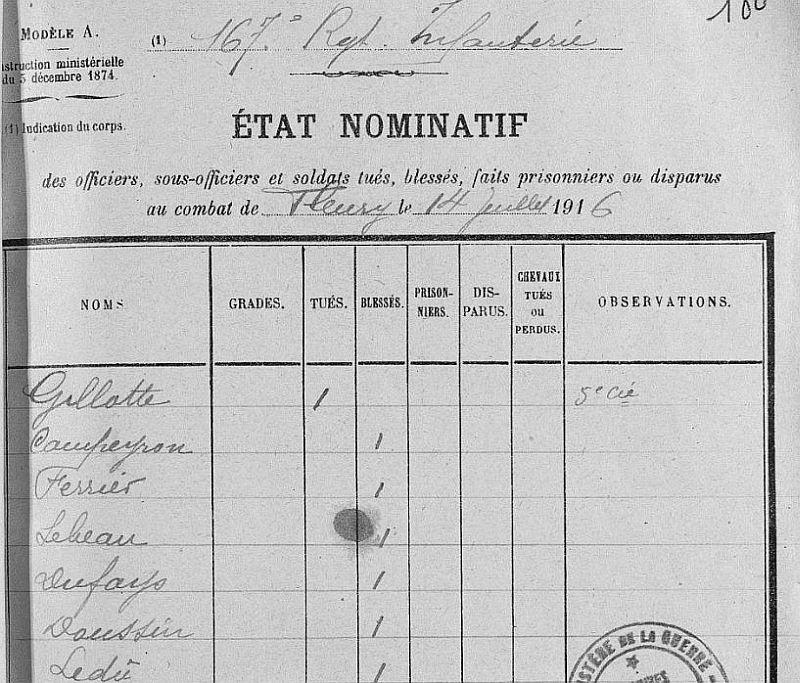 MODÈLE A.
(1) 167e Rgt. Infanterie
nstruction ministérielle
du 5 décembre 1874.
(1) Indication du corps.
ÉTAT NOMINATIF
des officiers, sous-officiers et soldats tués, blessés, faits prisonniers ou disparus
au combat de Fleury le 14 juillet 1916
NOMS GRADES. TUÉS. BLESSÉS. PRISON-NIERS. DIS-PARUS. CHEVAUX TUÉS ou PERDUS. OBSERVATIONS.
Gillotte 1 5e Cie
Campeyron 1
Ferrier 1
Lebeau 1
Dufays 1
Doussin 1
Ledû 1
MINISTÈRE DE LA GUERRE